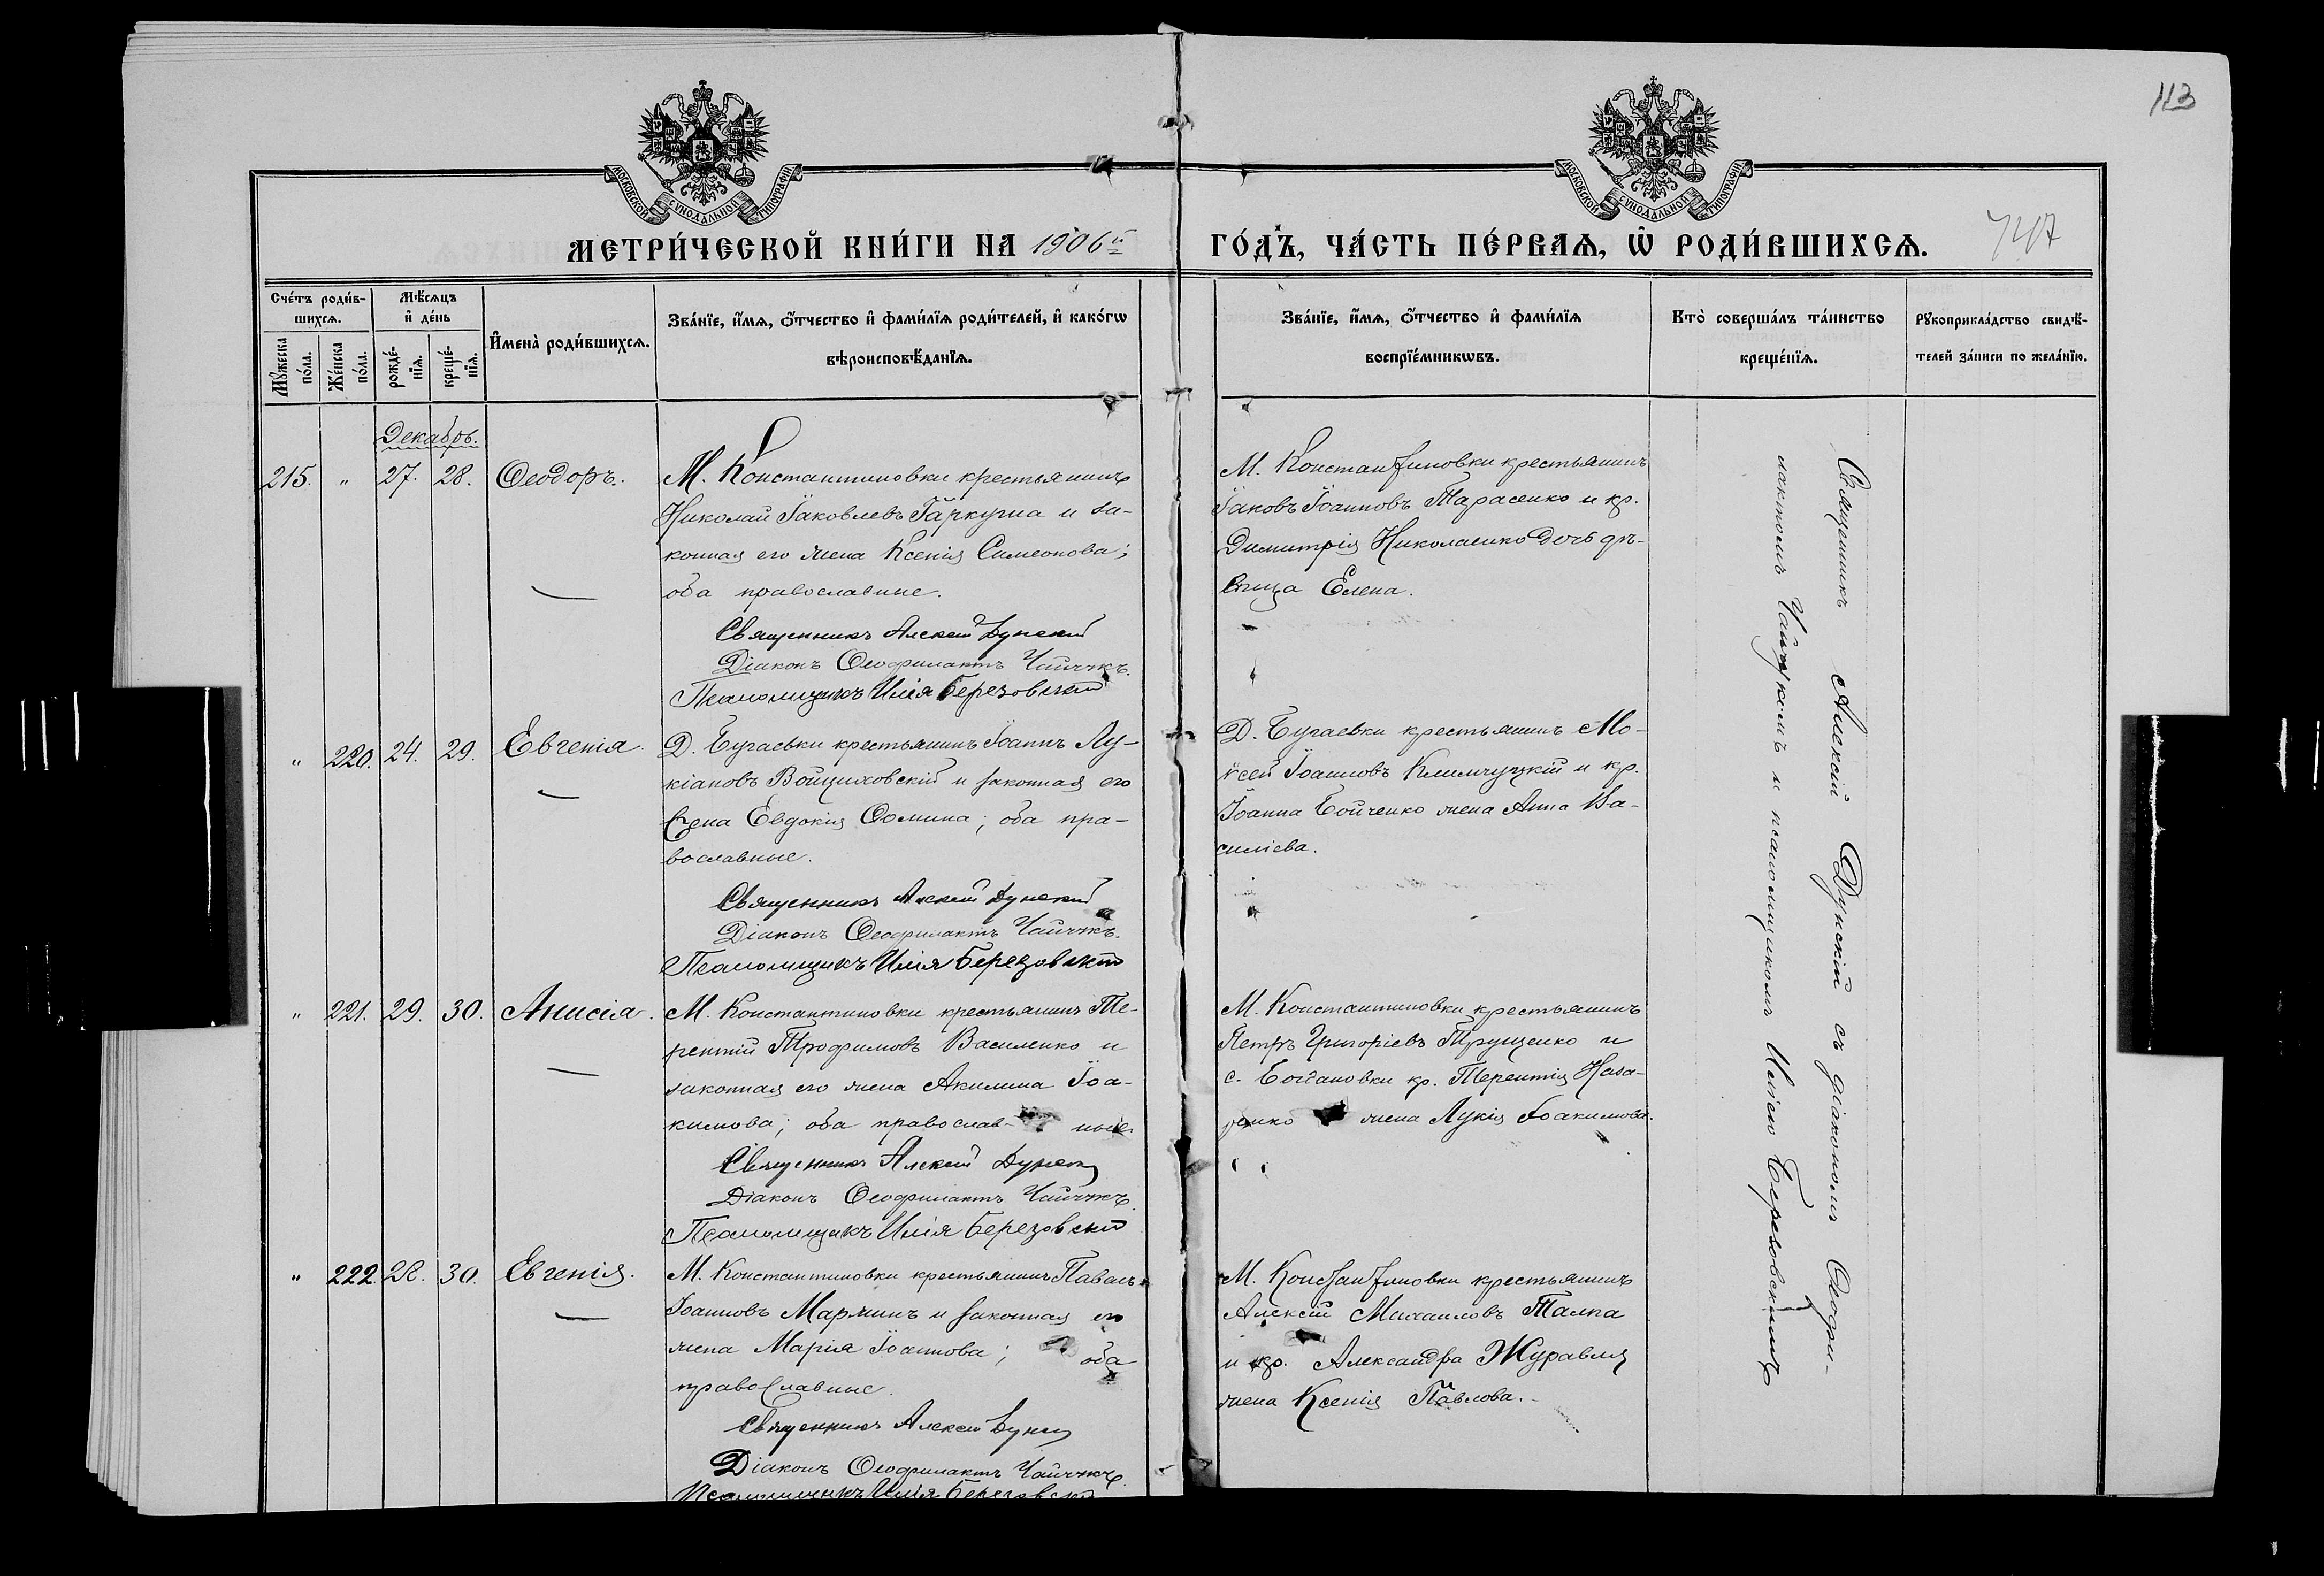 113
МОСКОВСКОЙ СѴНОДАЛЬНОЙ ТИПОГРАФІИ
МОСКОВСКОЙ СѴНОДАЛЬНОЙ ТИПОГРАФІИ
МЕТРИ́ЧЕСКОЙ КНИ́ГИ НА 1906й ГО́ДЪ, ЧА́СТЬ ПЕ́РВАѦ, Ѽ РОДИ́ВШИХСѦ.
747
Сче́тъ роди́в-
шихсѧ.
Мꙋжеска
по́ла.
Же́нска
по́ла.
Мѣ́сѧцъ
и҆ де́нь
рожде́-
нїѧ.
креще́-
нїѧ.
И҆мена̀ роди́вшихсѧ.
Зва́нїе, и҆́мѧ, ѻ҆́тчество и҆ фами́лїѧ роди́телей, и҆ како́гѡ
вѣроисповѣ́данїѧ.
Зва́нїе, и҆́мѧ, ѻ҆́тчество и҆ фами́лїѧ
воспрїе́мникѡвъ.
Кто̀ соверша́лъ та́инство
креще́нїѧ.
Рꙋкоприкла́дство свидѣ́-
телей за́писи по жела́нїю.
Декабрь.
215. " 27. 28. Ѳеодоръ.
М. Константиновки крестьянинъ
Николай Іаковлевъ Гаркуша и за-
конная его жена Ксенія Симеонова;
оба православные.
Священникъ Алексій Дунскій
Діаконъ Ѳеофилактъ Чайчукъ.
Псаломщикъ Илія Березовскій
М. Константиновки крестьянинъ
Іаковъ Іоанновъ Тарасенко и кр.
Димитрія Николаенко дочь дѣ-
вица Елена.
" 220. 24. 29. Евгенія.
Д. Бугаевки крестьянинъ Іоаннъ Лу-
кіановъ Войциховскій и законная его
жена Евдокія Ѳомина; оба пра-
вославные.
Священникъ Алексій Дунскій
Діаконъ Ѳеофилактъ Чайчукъ.
Псаломщикъ Илія Березовскій
Д. Бугаевки крестьянинъ Мо-
ѵсей Іоанновъ Климчуцкій и кр.
Іоанна Бойченко жена Анна Ва-
силіева.
" 221. 29. 30. Анисія.
М. Константиновки крестьянинъ Те-
рентій Трофимовъ Василенко и
законная его жена Акилина Іоа-
кимова; оба православ- ные
Священникъ Алексій Дунскій
Діаконъ Ѳеофилактъ Чайчукъ.
Псаломщикъ Илія Березовскій
М. Константиновки крестьянинъ
Петръ Григоріевъ Трущенко и
с. Богдановки кр. Терентія Наза-
ренко жена Лукія Іоакимова.
" 222. 28. 30. Евгенія.
М. Константиновки крестьянинъ Павелъ
Іоанновъ Маржинъ и законная его
жена Марія Іоаннова; оба
православные.
Священникъ Алексій Дунскій
Діаконъ Ѳеофилактъ Чайчукъ.
Псаломщикъ Илія Березовскій
М. Константиновки крестьянинъ
Алексій Михаиловъ Талпа
и кр. Александра Журавля
жена Ксенія Павлова.
Священникъ Алексій Дунскій съ діакономъ Ѳеофи-
лактомъ Чайчукомъ и псаломщикомъ Иліею Березовскимъ